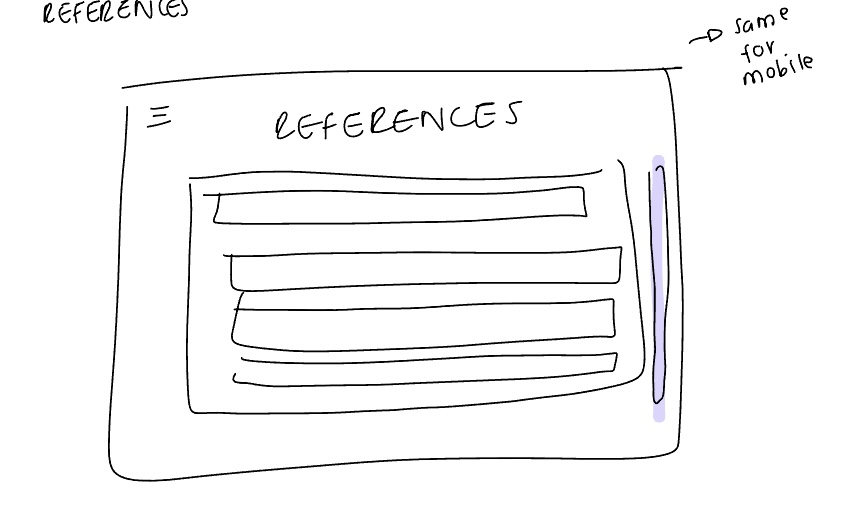 REFERENCES
same
for
mobile
REFERENCES